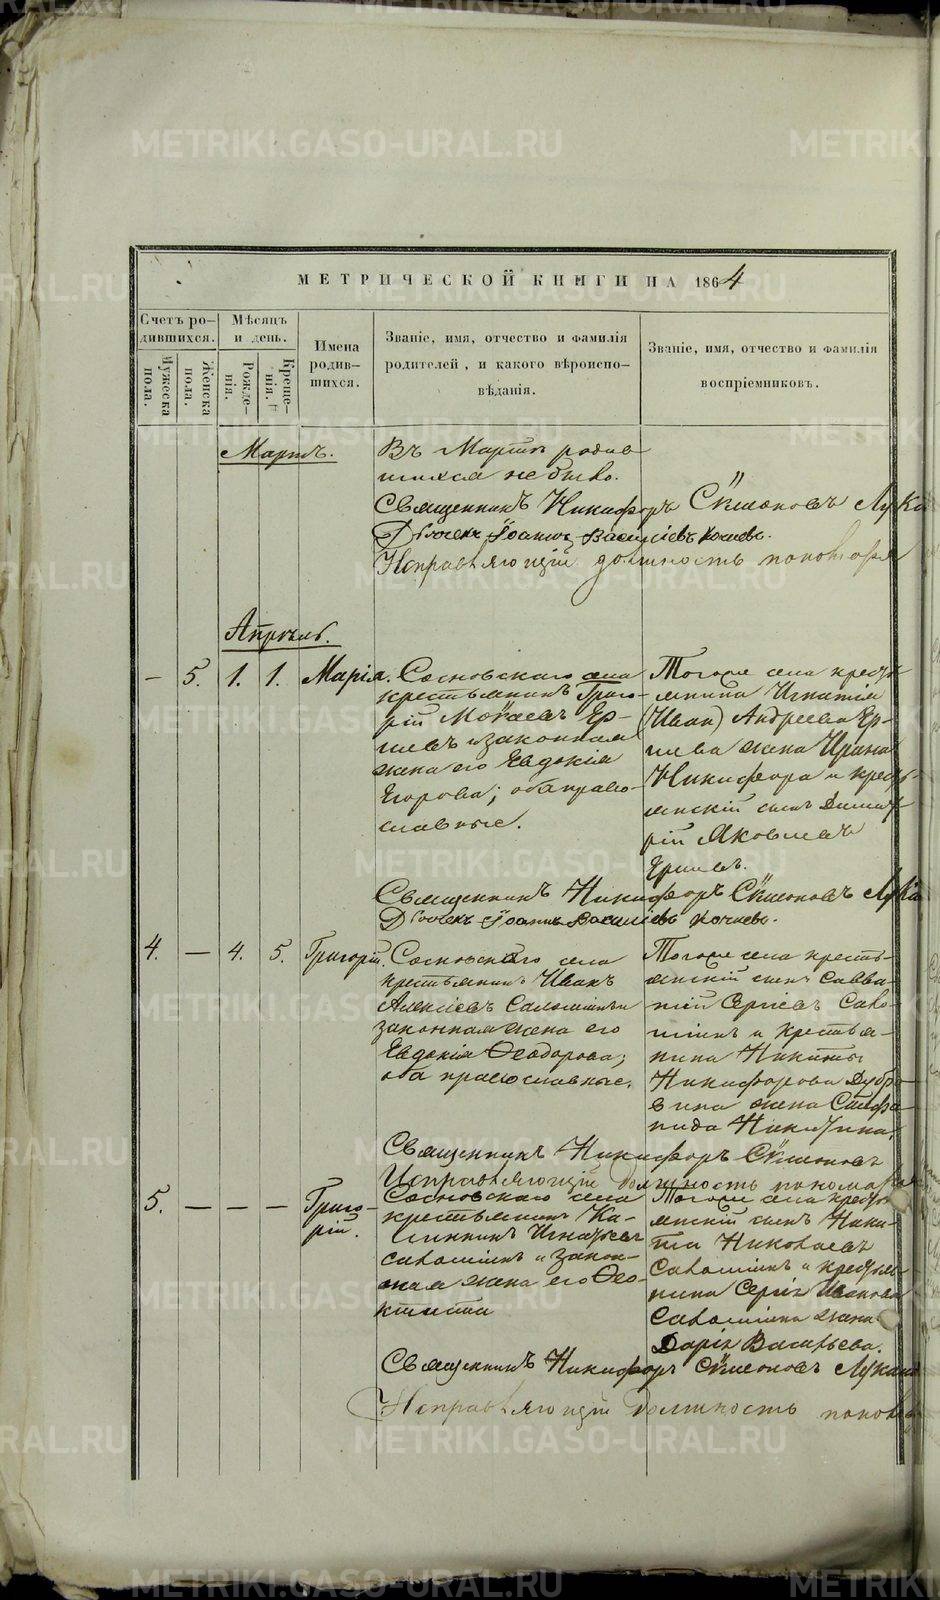 МЕТРИЧЕСКОЙ КНИГИ НА 1864
Счетъ ро-
дившихся.
Мужеска
пола.
Женска
пола.
Мѣсяцъ
и день.
Рожде-
нія.
Креще-
нія.
Имена
родив-
шихся.
Званіе, имя, отчество и фамилія
родителей, и какого вѣроиспо-
вѣданія.
Званіе, имя, отчество и фамилія
воспріемниковъ.
Мартъ.
Въ Мартѣ родив
шихся не было.
Священникъ Никифоръ Сѵмеоновъ
Діаконъ Іоаннъ Васильевъ
Исправляющій должность пономаря
Апрѣль.
— 5. 1. 1. Марія.
Сосновскаго села
крестьянинъ Григо-
рій Ер-
шевъ и законная
жена его Евдокія
Егорова; оба право-
славные.
Тогоже села кресть
янина Игнатія
(Иван) Андреева Ер-
шева жена Ирина
Никифора и кресть-
янскій сынъ Димит
рій Яковлевъ
Ершев.
Священникъ Никифоръ Сѵмеоновъ
Діаконъ Іоаннъ Васильевъ
4. — 4. 5. Григорій.
Сосновскаго села
крестьянинъ Иванъ
Алексѣевъ
законная жена его
Евдокія Ѳеодорова;
оба православные.
Тогоже села кресть-
янскій сынъ Савва-
тій Сергіевъ Саво-
шинъ и крестья-
нина Никиты
Никифорова Дубро
вина жена Стефа
нида Никитина.
Священникъ Никифоръ Сѵмеоновъ
Исправляющій должность пономаря
5. — — — Григо-
рій.
Сосновскаго села
крестьянинъ Ка-
линникъ Игнатьевъ
Савошинъ и закон-
ная жена его Ѳео-
ктиста
Тогоже села кресть
янскій сынъ Ники-
та Николаевъ
Савошинъ и кресть
нина Сергія Иванова
Савошина жена
Дарія Васильева.
Священникъ Никифоръ Сѵмеоновъ
Исправляющій должность
METRIKI.GASO-URAL.RU